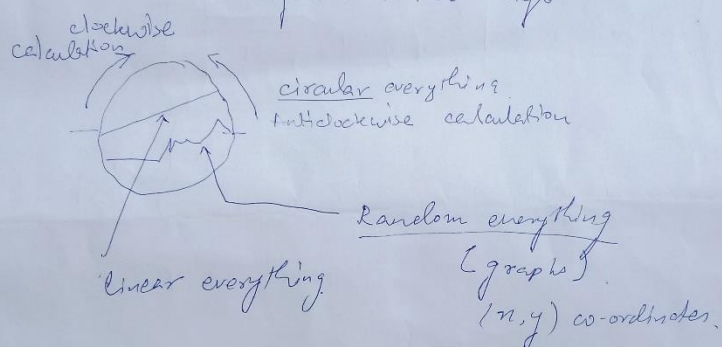 clockwise
calculation
circular everything
Anticlockwise calculation
Random everything
(graphs)
(x,y) co-ordinates.
linear everything